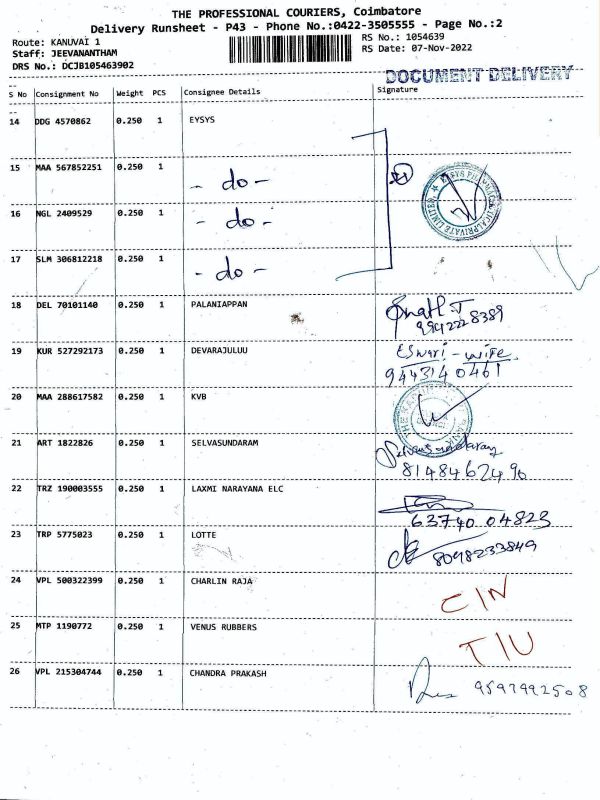 THE PROFESSIONAL COURIERS, Coimbatore
Delivery Runsheet - P43 - Phone No.:0422-3505555 - Page No.:2
Route: KANUVAI 1 RS No.: 1054639
Staff: JEEVANANTHAM RS Date: 07-Nov-2022
DRS No.: DCJB105463902
DOCUMENT DELIVERY
S No Consignment No Weight PCS Consignee Details Signature
14 DDG 4570862 0.250 1 EYSYS
15 MAA 567852251 0.250 1 - do -
16 NGL 2409529 0.250 1 - do -
17 SLM 306812218 0.250 1 - do -
18 DEL 70101140 0.250 1 PALANIAPPAN
9942228389
19 KUR 527292173 0.250 1 DEVARAJULUU Eswari - wife
9443140461
20 MAA 288617582 0.250 1 KVB
21 ART 1822826 0.250 1 SELVASUNDARAM Selvasundaram
8148462490
22 TRZ 190003555 0.250 1 LAXMI NARAYANA ELC
63740 04823
23 TRP 5775023 0.250 1 LOTTE 8098233849
24 VPL 500322399 0.250 1 CHARLIN RAJA CIN
25 MTP 1190772 0.250 1 VENUS RUBBERS TIU
26 VPL 215304744 0.250 1 CHANDRA PRAKASH 9597992508